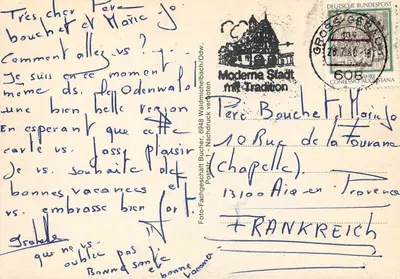 Très cher Père
bouchet et Marie jo
Comment allez vs ?
Je suis en ce moment
même ds. le Odenwald
une bien belle région
En esperant que cette
carte vs. fasse plaisir
je vs. souhaite de
bonnes vacances et
vs. embrasse bien fort.
Isabelle
qui ne vs.
oublie pas
Bonne santé
et bonne vacances
Foto-Fachgeschäft Bucher, 6948 Waldmichelbach/Odw.
Nachdruck verboten
Moderne Stadt
mit Tradition
GROSS-GERAU
6080
DEUTSCHE BUNDESPOST
CONFESSIO AUGUSTANA
Père Bouchet Marie jo
10 Rue de la
(Chapelle)
13100 Aix en Provence
FRANKREICH